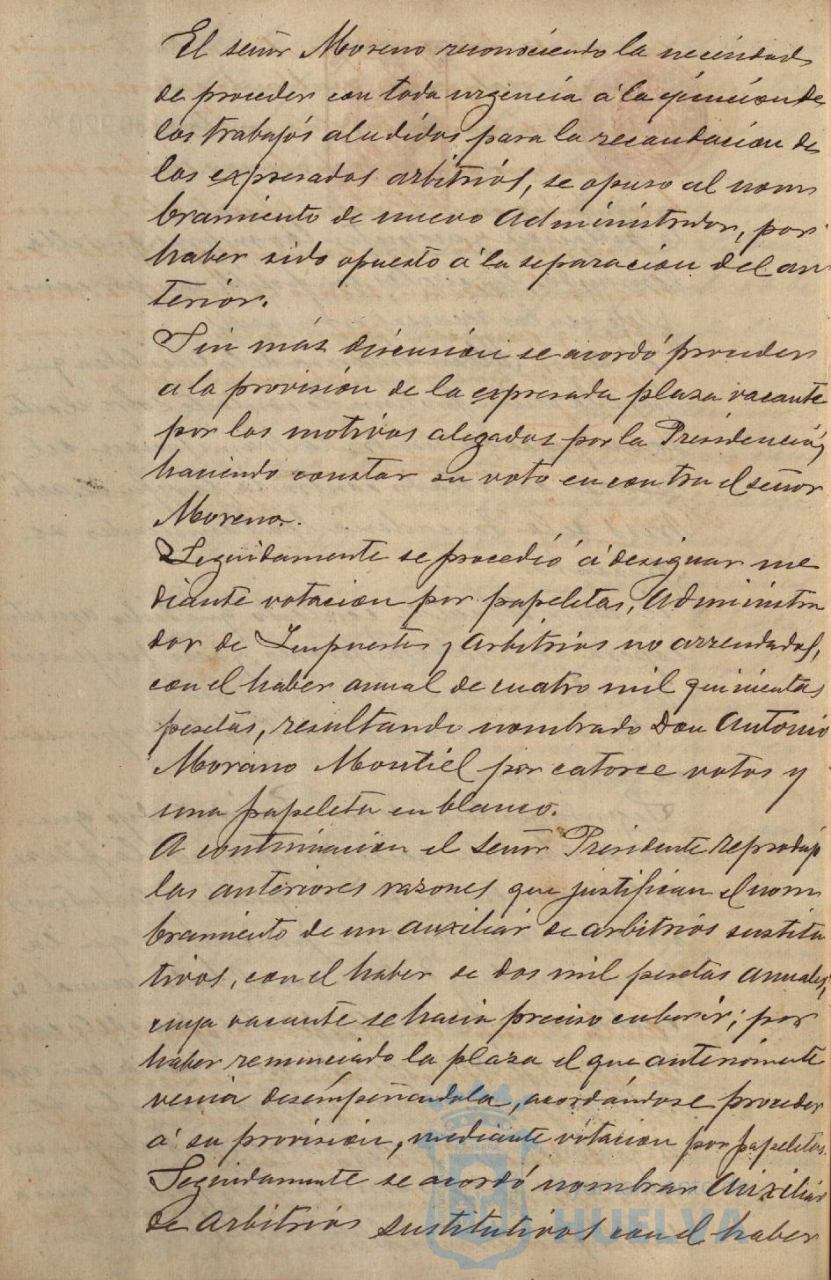 El señor Moreno reconociendo la necesidad
de proceder con toda urgencia á la ejecución de
los trabajós aludidos para la recaudación de
los expresados arbitriós, se opuso al nom
bramiento de nuevo Administrador, por
haber sido opuesto á la separación del an
terior.
Sin más discusión se acordó proceder
a la provisión de la expresada plaza vacante
por los motivos alegados por la Presidencia,
haciendo constar su voto en contra el señor
Moreno.
Seguidamente se procedió á designar me
diante votacion por papeletas, Administra
dor de Impuestos y Arbitrios no arrendados,
con el haber anual de cuatro mil quinientas
pesetas, resultando nombrado Don Antonio
Morano Montiel por catorce votos y
una papeleta en blanco.
A continuación el señor Presidente reprodujo
las anteriores razones que justifican el nom
bramiento de un auxiliar de arbitriós sustitu
tivos, con el haber de dos mil pesetas anuales,
cuya vacante se hacia preciso cubrir; por
haber renunciado la plaza el que anteriormente
venia desempeñandola, acordándose proceder
á su provisión, mediante votacion por papeletas.
Seguidamente se acordó nombrar Auxiliar
de Arbitrios sustitutivos con el haber
HUELVA